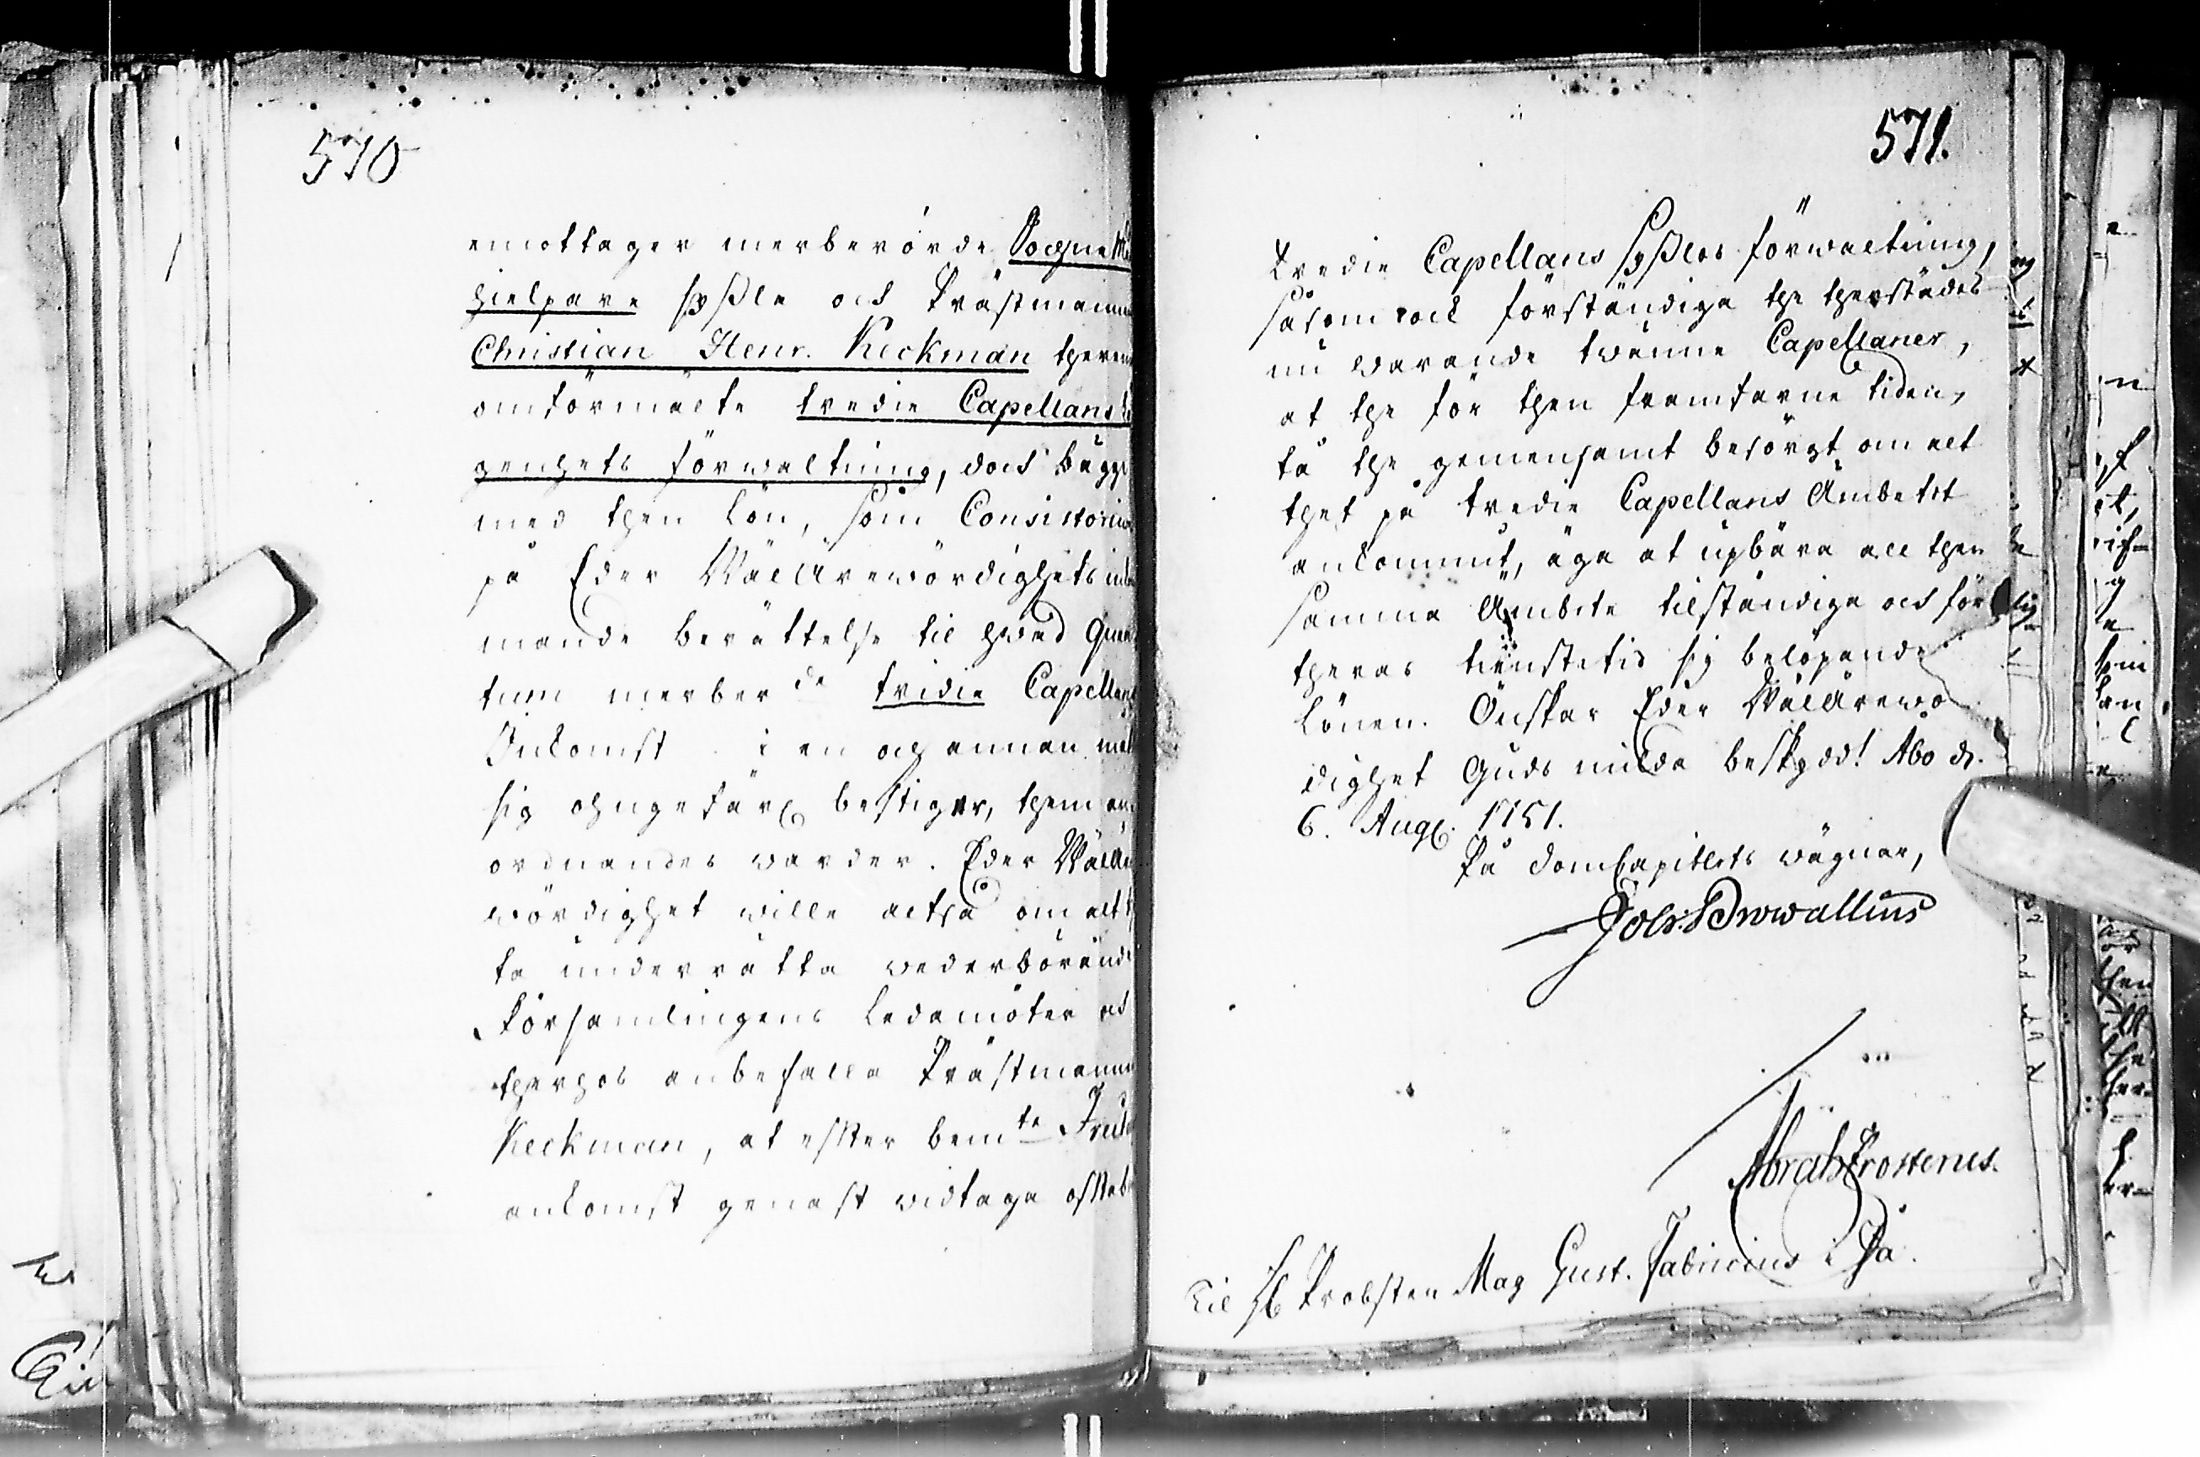 570
emottager merberörde Sockne
hielpare syßla och Prästmannen
Christian Henr. Keckman
omförmälte tredie Capellans
genhets förwaltning, doch bägge
med then lön, som Consistorium
på Eder WälÄrewördighets
mande berättelse til hwad
tum merber de tridie Capellans
Inkomst i en och annan
sig ohngefär bestiger, them
ordnandes warder. Eder
wördighet wille altså om alt
ta underrätta wederbörande
Församlingens Ledamöter och
therhos anbefalla Prästmannen
Keckman, at efter bem te
ankomst genast widtaga
571.
tredie Capellans syßlos förwaltning,
såsom och förständiga the therstädes
nu warande twänne Capellaner,
at the för then framfarne tiden,
få the gemensamt besörgt om alt
thet på tredie Capellans Ämbetet
ankommit, äga at upbära all then
samma Ämbete tilständiga och för
theras tienstetid sig belöpande
Lönen. Önskar Eder WälÄrewö
dighet Guds milda beskydd! Åbo d.
6. Aug. 1751.
På DomCapitlets wägnar,
Joh: Browallius
Abrah Frosterus.
Til H Probsten Mag Gust. Fabricius i